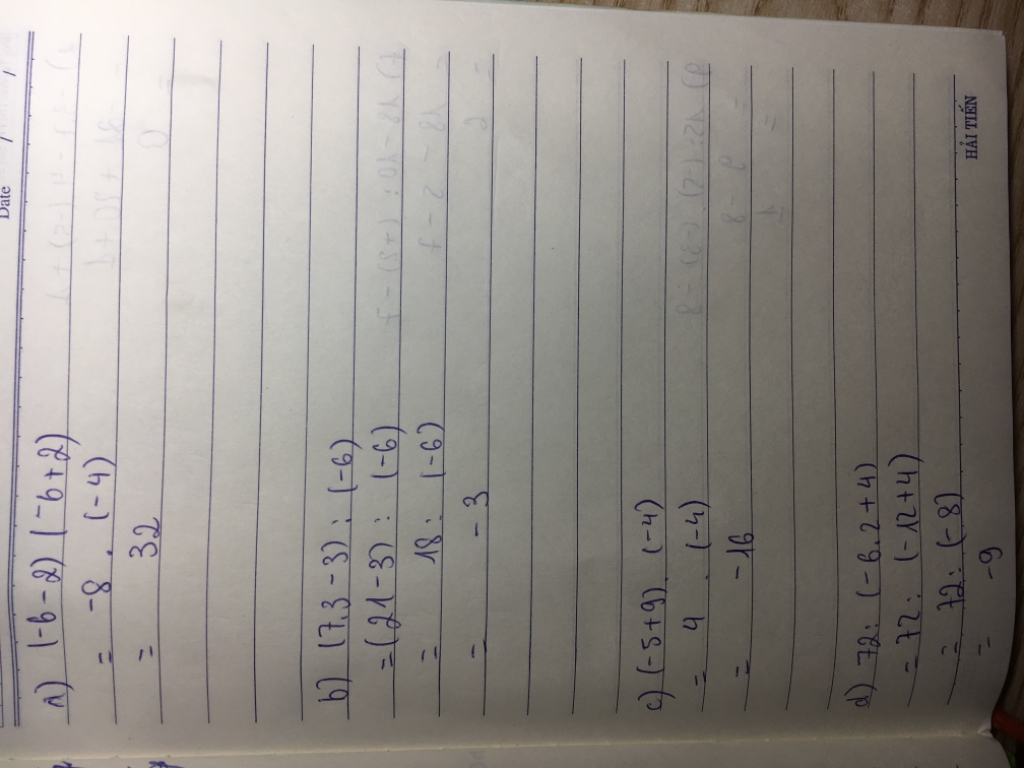 Date
a) (-6-2) (-6+2)
= -8 . (-4)
= 32
b) (7.3-3) : (-6)
= (21-3) : (-6)
= 18 : (-6)
= -3
c) (-5+9) . (-4)
= 4 . (-4)
= -16
d) 72 : (-6.2+4)
= 72 : (-12+4)
= 72 : (-8)
= -9
HẢI TIẾN